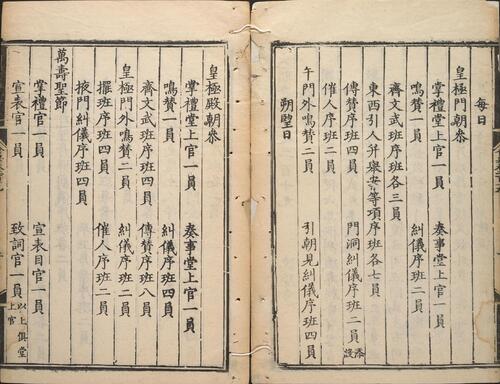 每日
皇極門朝叅
掌禮堂上官一員 奏事堂上官一員
鳴贊一員 糾儀序班二員
齊文武班序班各三員
東西引人并舉案等項序班各七員
傳贊序班四員 門洞糾儀序班二員添設
催人序班二員
午門外鳴贊二員 引朝見糾儀序班四員
朔望日
皇極殿朝叅
掌禮堂上官一員 奏事堂上官一員
鳴贊一員 糾儀序班四員
齊文武班序班四員 傳贊序班八員
皇極門外鳴贊二員 糾儀序班二員
擺班序班四員 催人序班二員
掖門糾儀序班四員
萬壽聖節
掌禮官一員 宣表目官一員
宣表官一員 致詞官一員以上俱堂上官